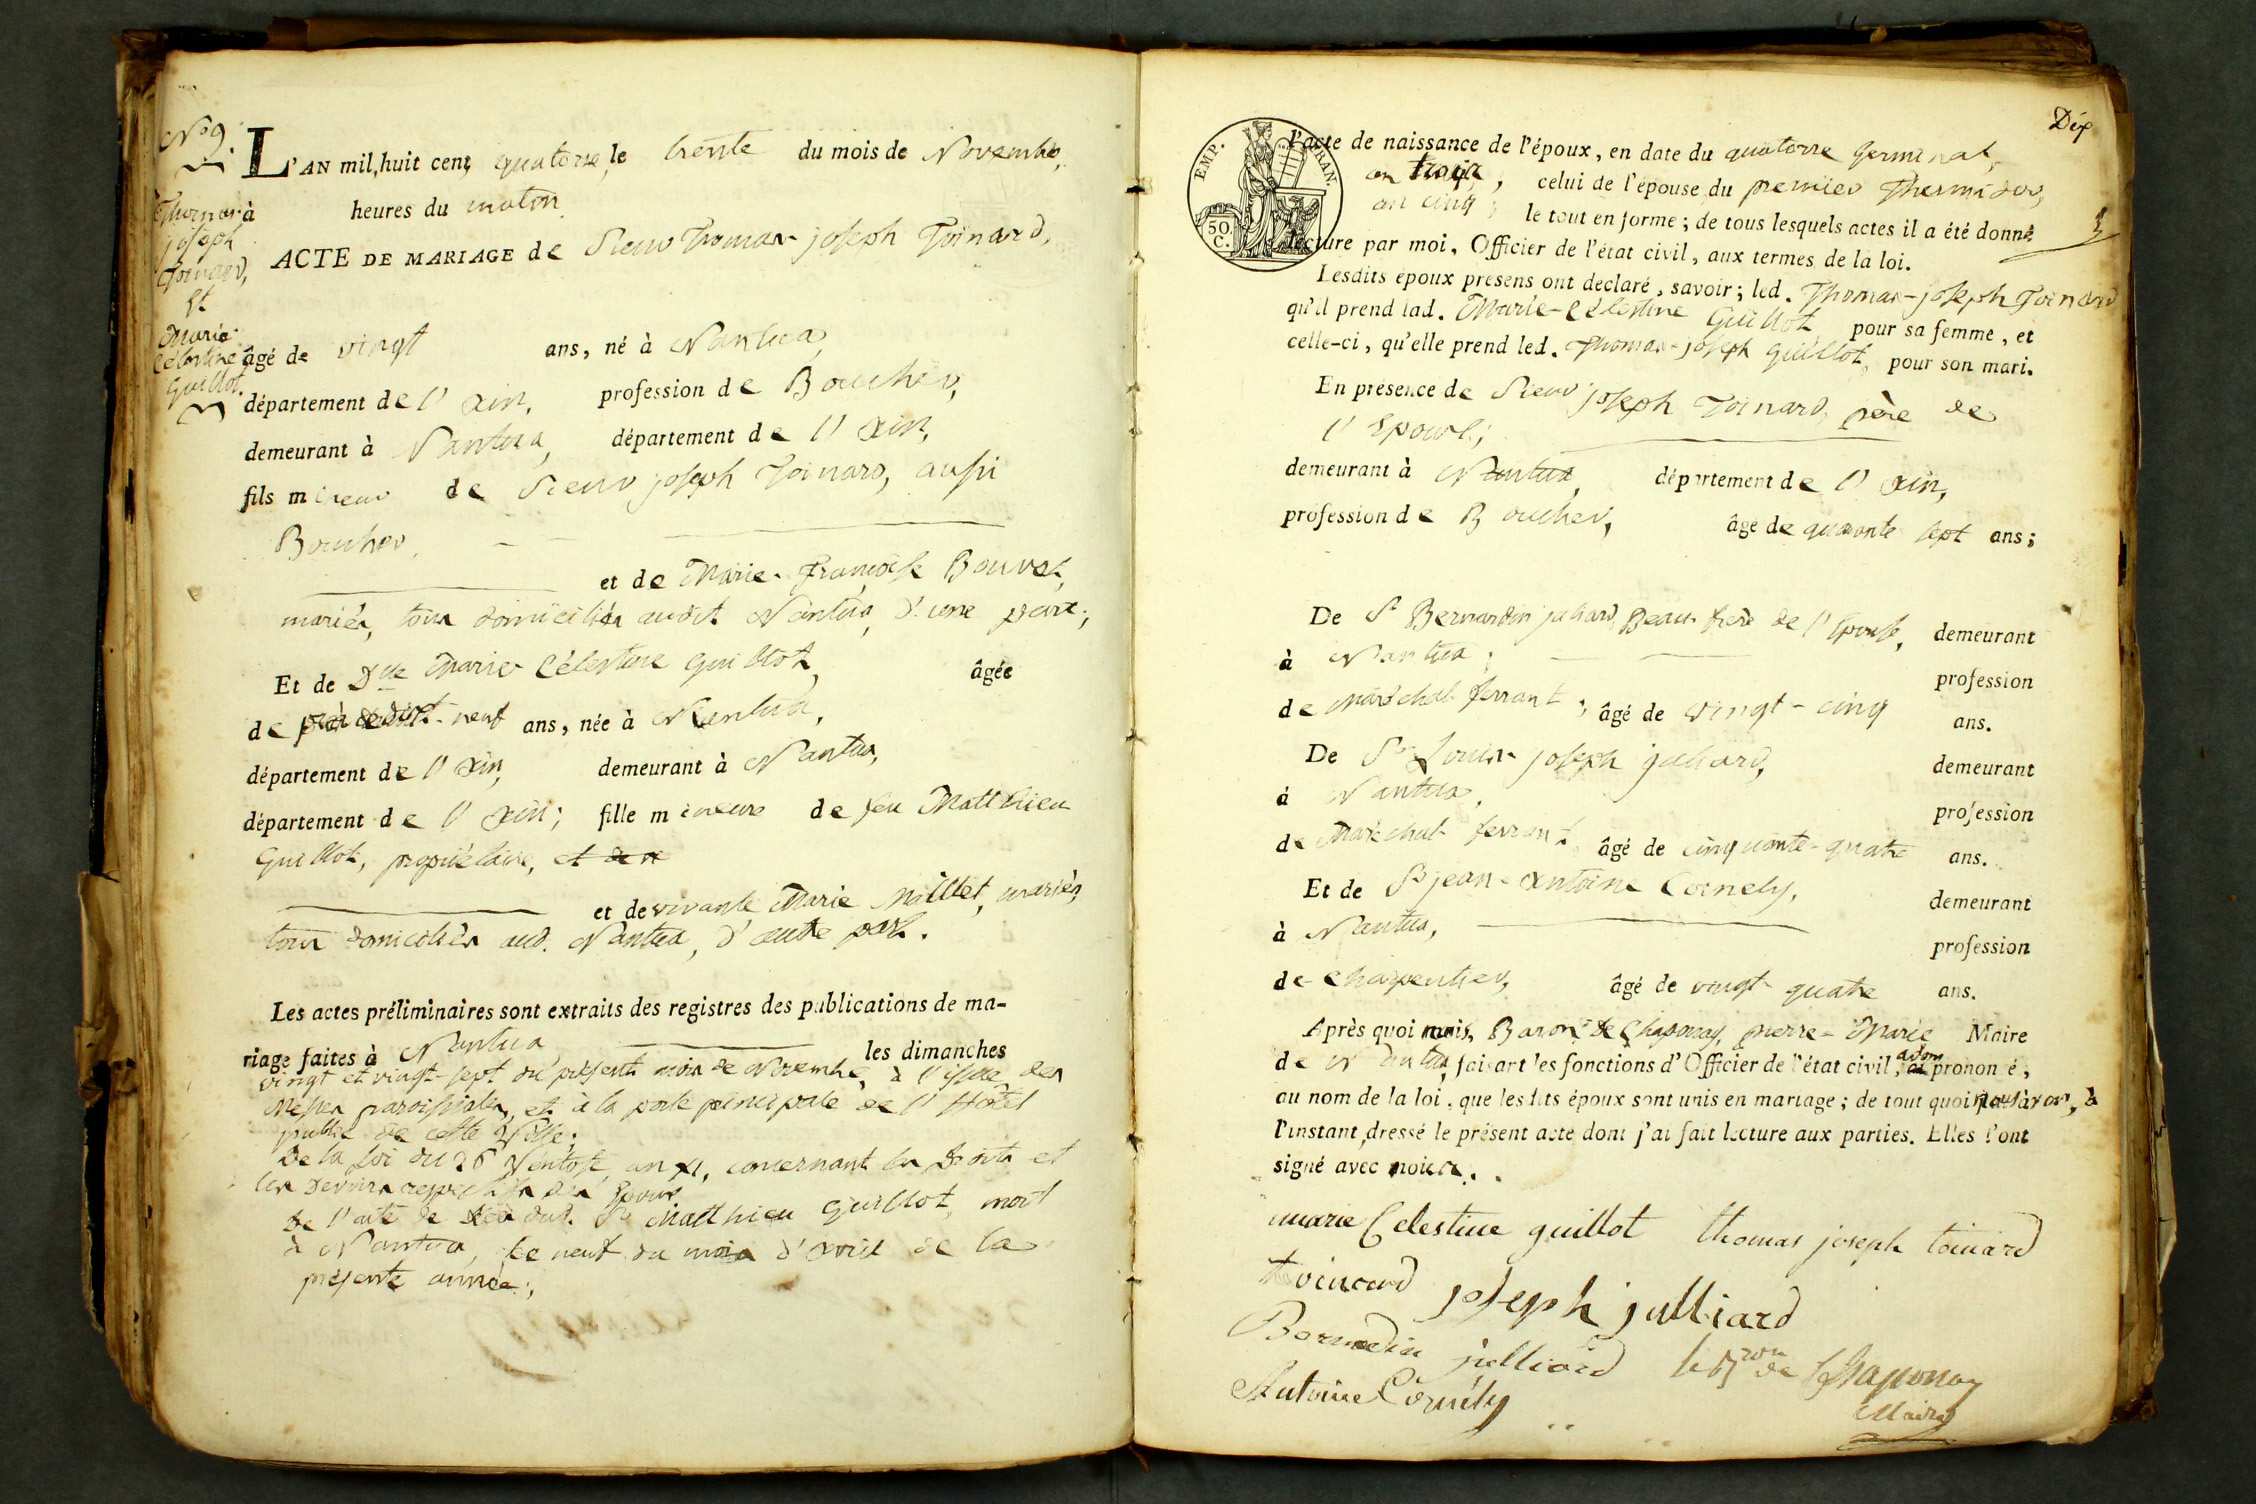 N° 9.
L'AN mil huit cent quatorze, le trente du mois de Novembre,
à heures du matin
Thomas
joseph
Toinard,
Et
Marie
Célestine
Guillot.
ACTE DE MARIAGE de Sieur Thomas joseph Toinard,
âgé de vingt ans, né à Nantua,
département de l'Ain, profession de Boucher,
demeurant à Nantua, département de l'Ain,
fils mineur de Sieur joseph Toinard, aussi
Boucher,
et de Marie-Françoise Bouvet,
mariés, tous domiciliés audit Nantua, d'une part;
Et de Dlle Marie Célestine Guillot, âgée
de dix-neuf ans, née à Nantua,
département de l'Ain, demeurant à Nantua,
département de l'Ain; fille mineure de feu Matthieu
Guillot, propriétaire, et de
et de vivante Marie Maillet, mariés,
tous domiciliés aud. Nantua, d'autre part.
Les actes préliminaires sont extraits des registres des publications de ma-
riage faites à Nantua les dimanches
vingt et vingt-sept du présent mois de Novembre, à l'issue des
Messes paroissiales, et à la porte principale de l'Hôtel
public de cette Ville;
De la Loi du 26 Ventose, an XI, concernant les Droits et
les Devoirs respectifs des Epoux
De l'acte de décès dud. Sr Matthieu Guillot, mort
à Nantua, le neuf du mois d'avril de la
présente année;
Dép
EMP. FRAN.
50.
C.
l'acte de naissance de l'époux, en date du quatorze Germinal,
an trois, celui de l'épouse du premier Thermidor,
an cinq; le tout en forme; de tous lesquels actes il a été donné
lecture par moi, Officier de l'état civil, aux termes de la loi.
Lesdits époux présens ont déclaré, savoir; led. Thomas-joseph Toinard
qu'il prend lad. Marie-Célestine Guillot pour sa femme, et
celle-ci, qu'elle prend led. Thomas-joseph Guillot, pour son mari.
En présence de Sieur joseph Toinard, père de
l'Epoux;
demeurant à Nantua, département de l'Ain,
profession de Boucher, âgé de quarante sept ans;
De Sr Bernardin juliard, Beau-frère de l'Epouse, demeurant
à Nantua; profession
de maréchal ferrant; âgé de vingt-cinq ans.
De Sr Louis joseph juliard, demeurant
à Nantua, profession
de Maréchal ferrant âgé de cinquante-quatre ans.
Et de Sr jean-Antoine Cornely, demeurant
à Nantua, profession
de charpentier, âgé de vingt-quatre ans.
Après quoi nous, Baron de Chaponay, pierre-Marie Maire
de Nantua, faisant les fonctions d'Officier de l'état civil, avons prononcé,
au nom de la loi, que lesdits époux sont unis en mariage; de tout quoi nous avons, à
l'instant, dressé le présent acte dont j'ai fait lecture aux parties. Elles l'ont
signé avec nous.
marie Celestine guillot thomas joseph toinard
toinard joseph julliard
Bernardin julliard le Bron de Chaponay
Antoine Cornély Maire